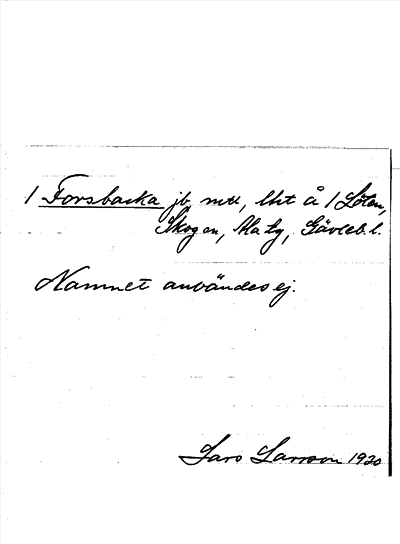 1 Forsbacka jb, mtl, lht å 1 Löten,
Skogen, Ma tg, Gävleb. l.
Namnet användes ej.
Lars Larsson 1920